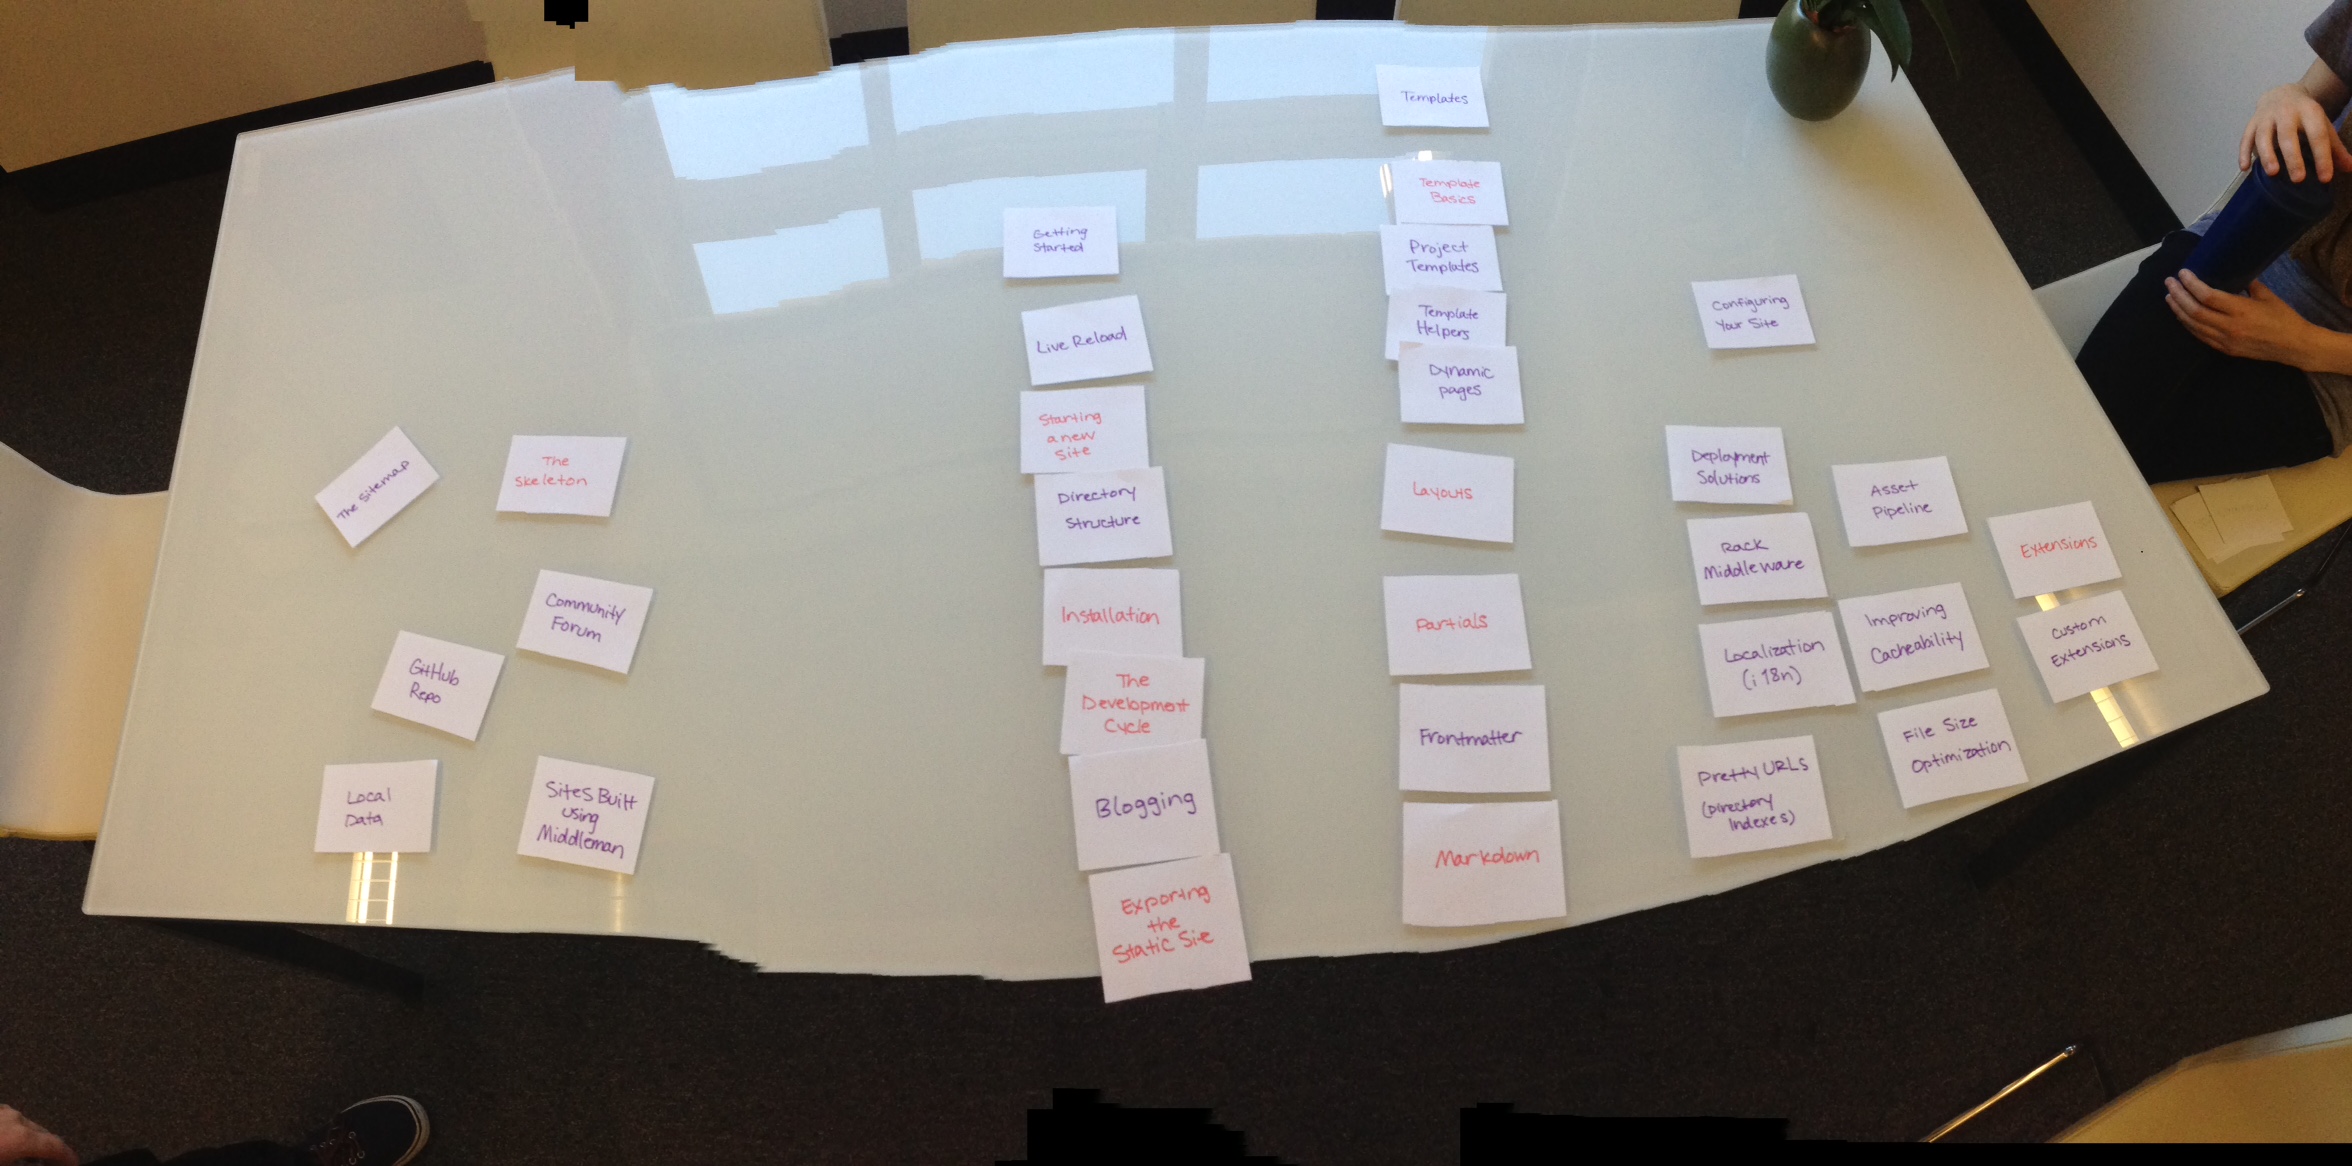 The Sitemap
The
Skeleton
Community
Forum
GitHub
Repo
Local
Data
Sites Built
using
Middleman
Getting
Started
Live Reload
Starting
a new
Site
Directory
Structure
Installation
The
Development
Cycle
Blogging
Exporting
the
Static Site
Templates
Template
Basics
Project
Templates
Template
Helpers
Dynamic
pages
Layouts
Partials
Frontmatter
Markdown
Configuring
Your Site
Deployment
Solutions
Rack
Middleware
Localization
(i18n)
Pretty URLs
(Directory
Indexes)
Asset
Pipeline
Improving
Cacheability
File Size
Optimization
Extensions
Custom
Extensions